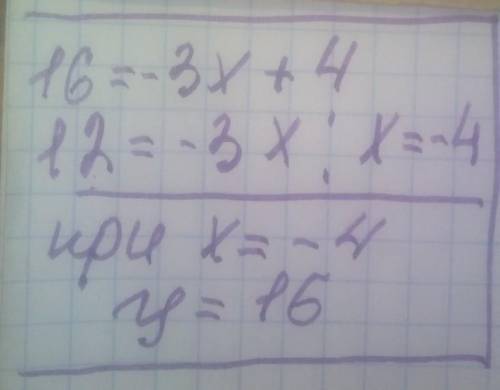 16=-3x+4
12=-3x; x=-4
при x=-4
y=16